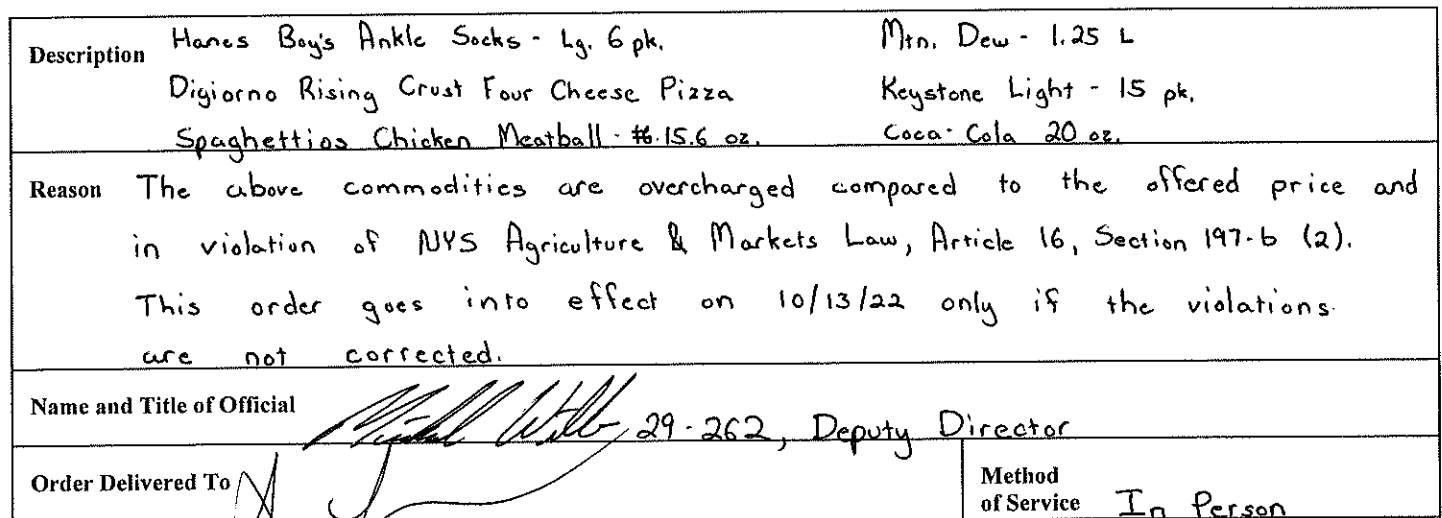 Description Hanes Boy's Ankle Socks - Lg. 6 pk. Mtn. Dew - 1.25 L
Digiorno Rising Crust Four Cheese Pizza Keystone Light - 15 pk.
Spaghettios Chicken Meatball - 15.6 oz. Coca-Cola 20 oz.
Reason The above commodities are overcharged compared to the offered price and
in violation of NYS Agriculture & Markets Law, Article 16, Section 197-b (2).
This order goes into effect on 10/13/22 only if the violations
are not corrected.
Name and Title of Official 29-262, Deputy Director
Order Delivered To
Method
of Service In Person